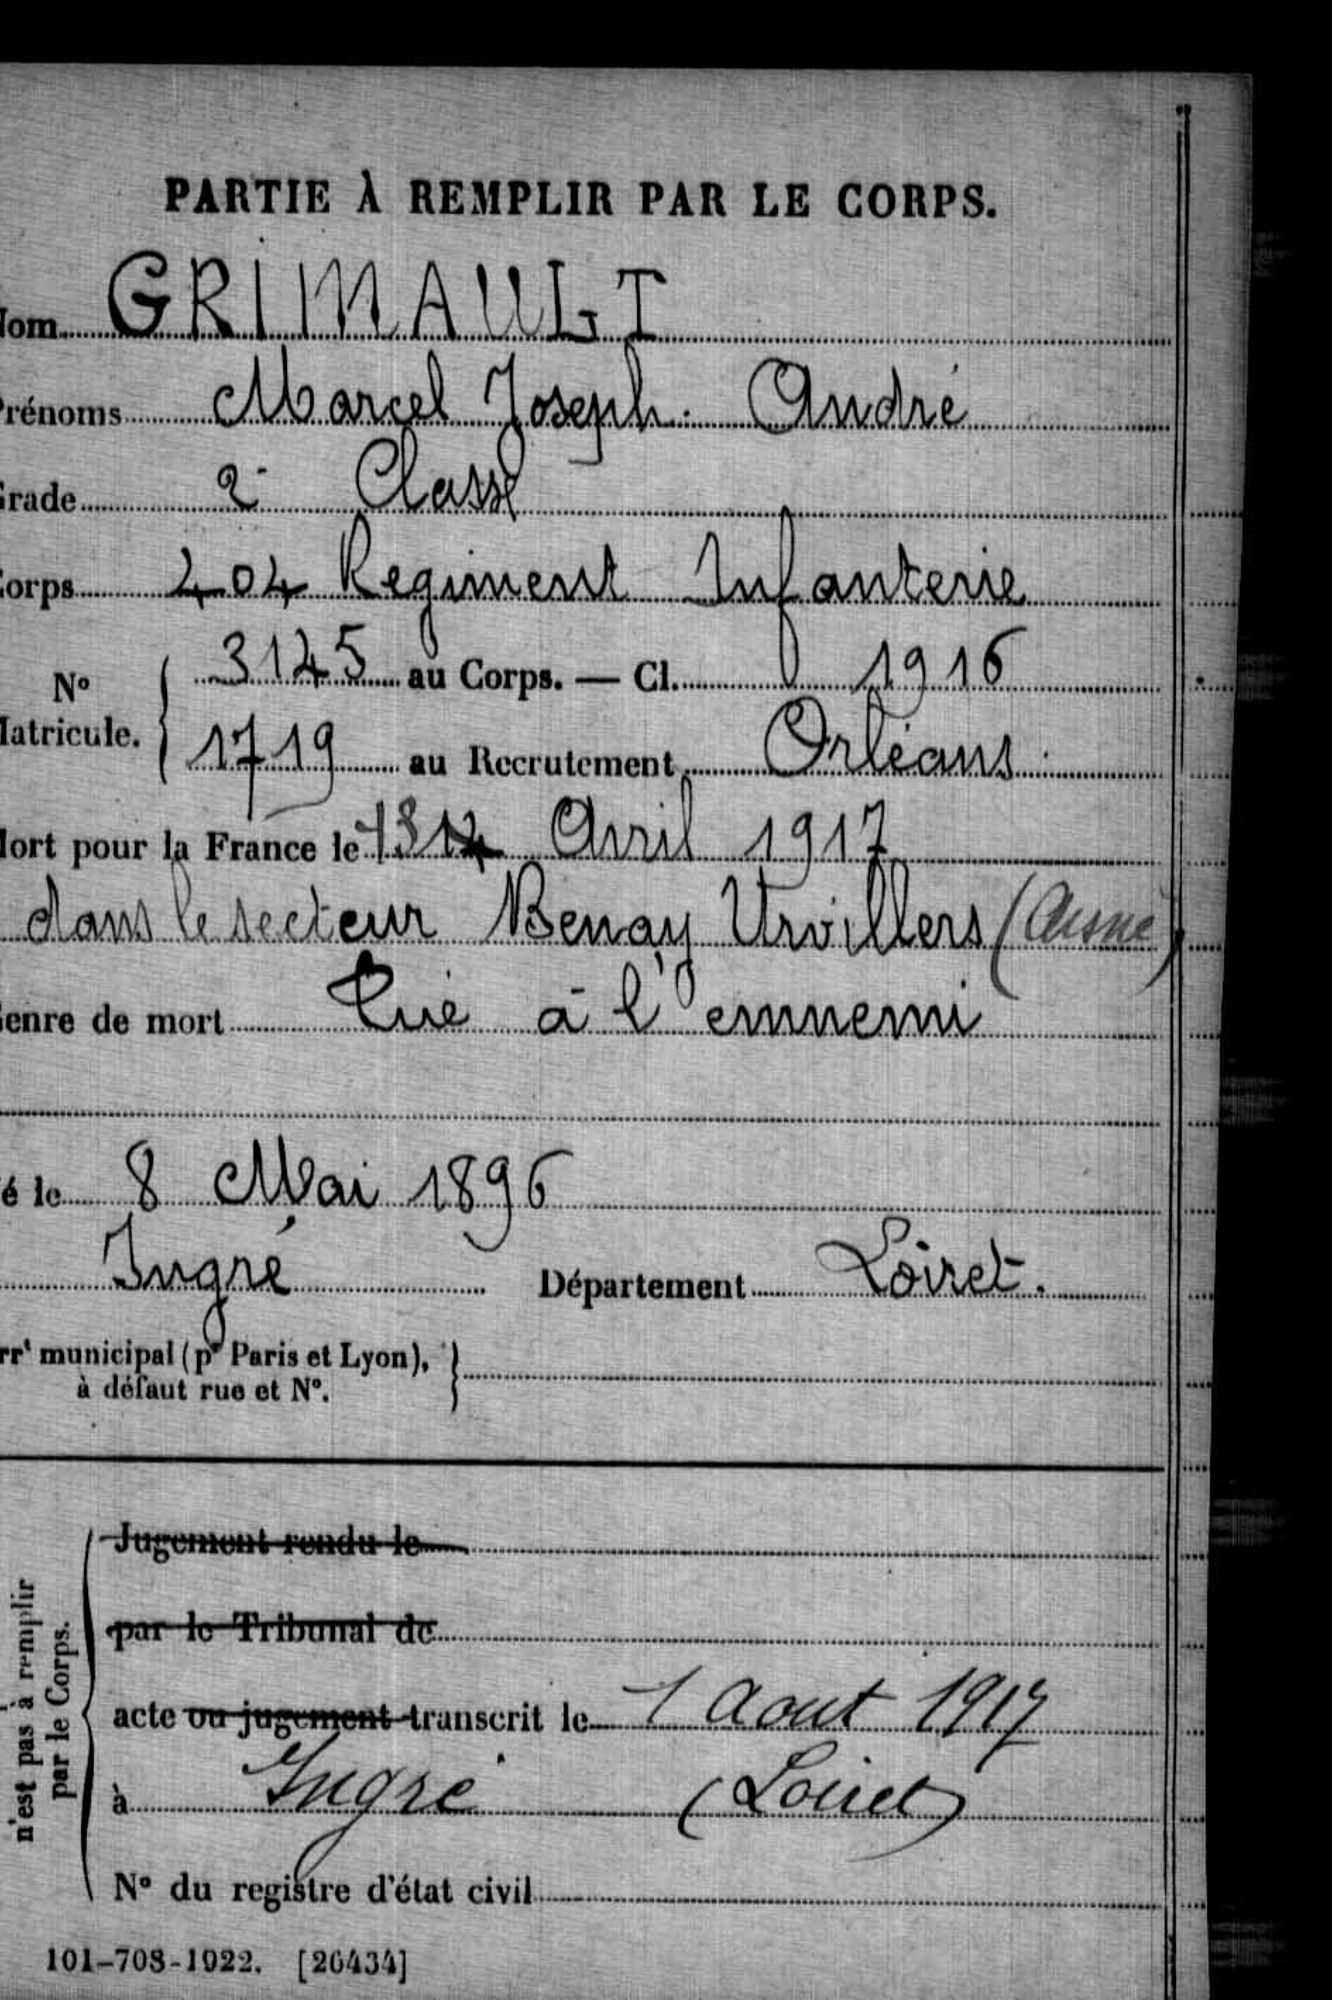 PARTIE À REMPLIR PAR LE CORPS.
Nom GRIMAULT
Prénoms Marcel Joseph. André
Grade 2e Classe
Corps 404 Regiment Infanterie
N° Matricule. { 3145 au Corps. — Cl. 1916
1719 au Recrutement Orléans.
Mort pour la France le Avril 1917
dans le secteur Benay Urvillers (Aisne)
Genre de mort Tué à l'emnemi
Né le 8 Mai 1896
Ingré Département Loiret.
Arrt municipal (pr Paris et Lyon), }
à défaut rue et N°.
n'est pas à remplir
par le Corps.
Jugement rendu le
par le Tribunal de
acte ou jugement transcrit le 1 Aout 1917
à Ingré (Loiret)
N° du registre d'état civil
101-708-1922. [26434]